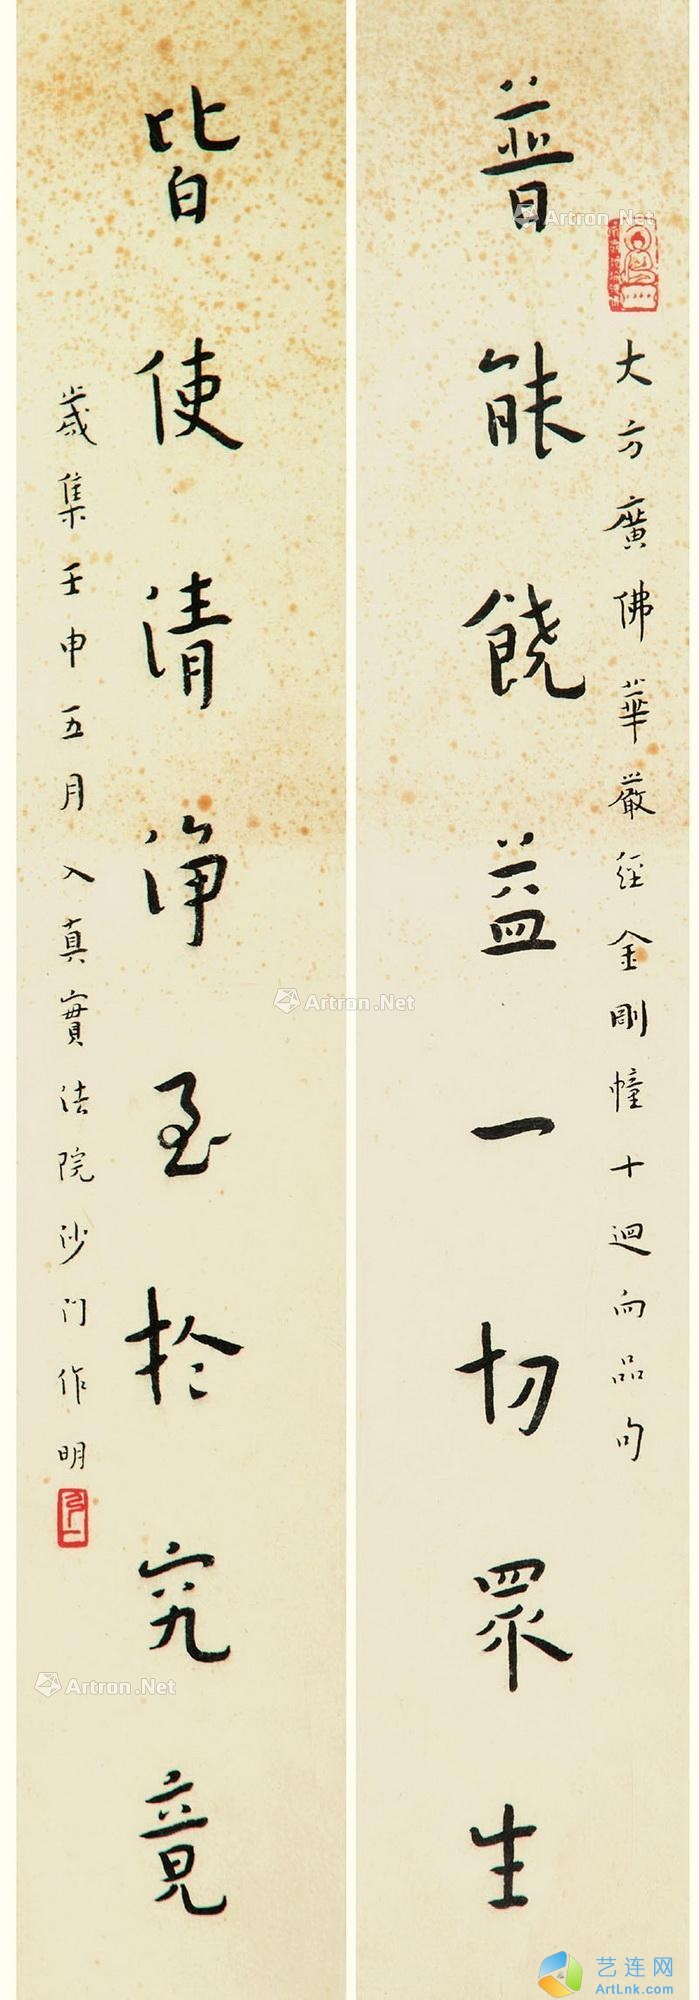 大方廣佛華嚴經金剛幢十迴向品句
普能饒益一切眾生
皆使清淨至於究竟
歲集壬申五月入真實法院沙门作明
Artron.Net
Artron.Net
Artron.Net
艺连网
ArtLnk.com